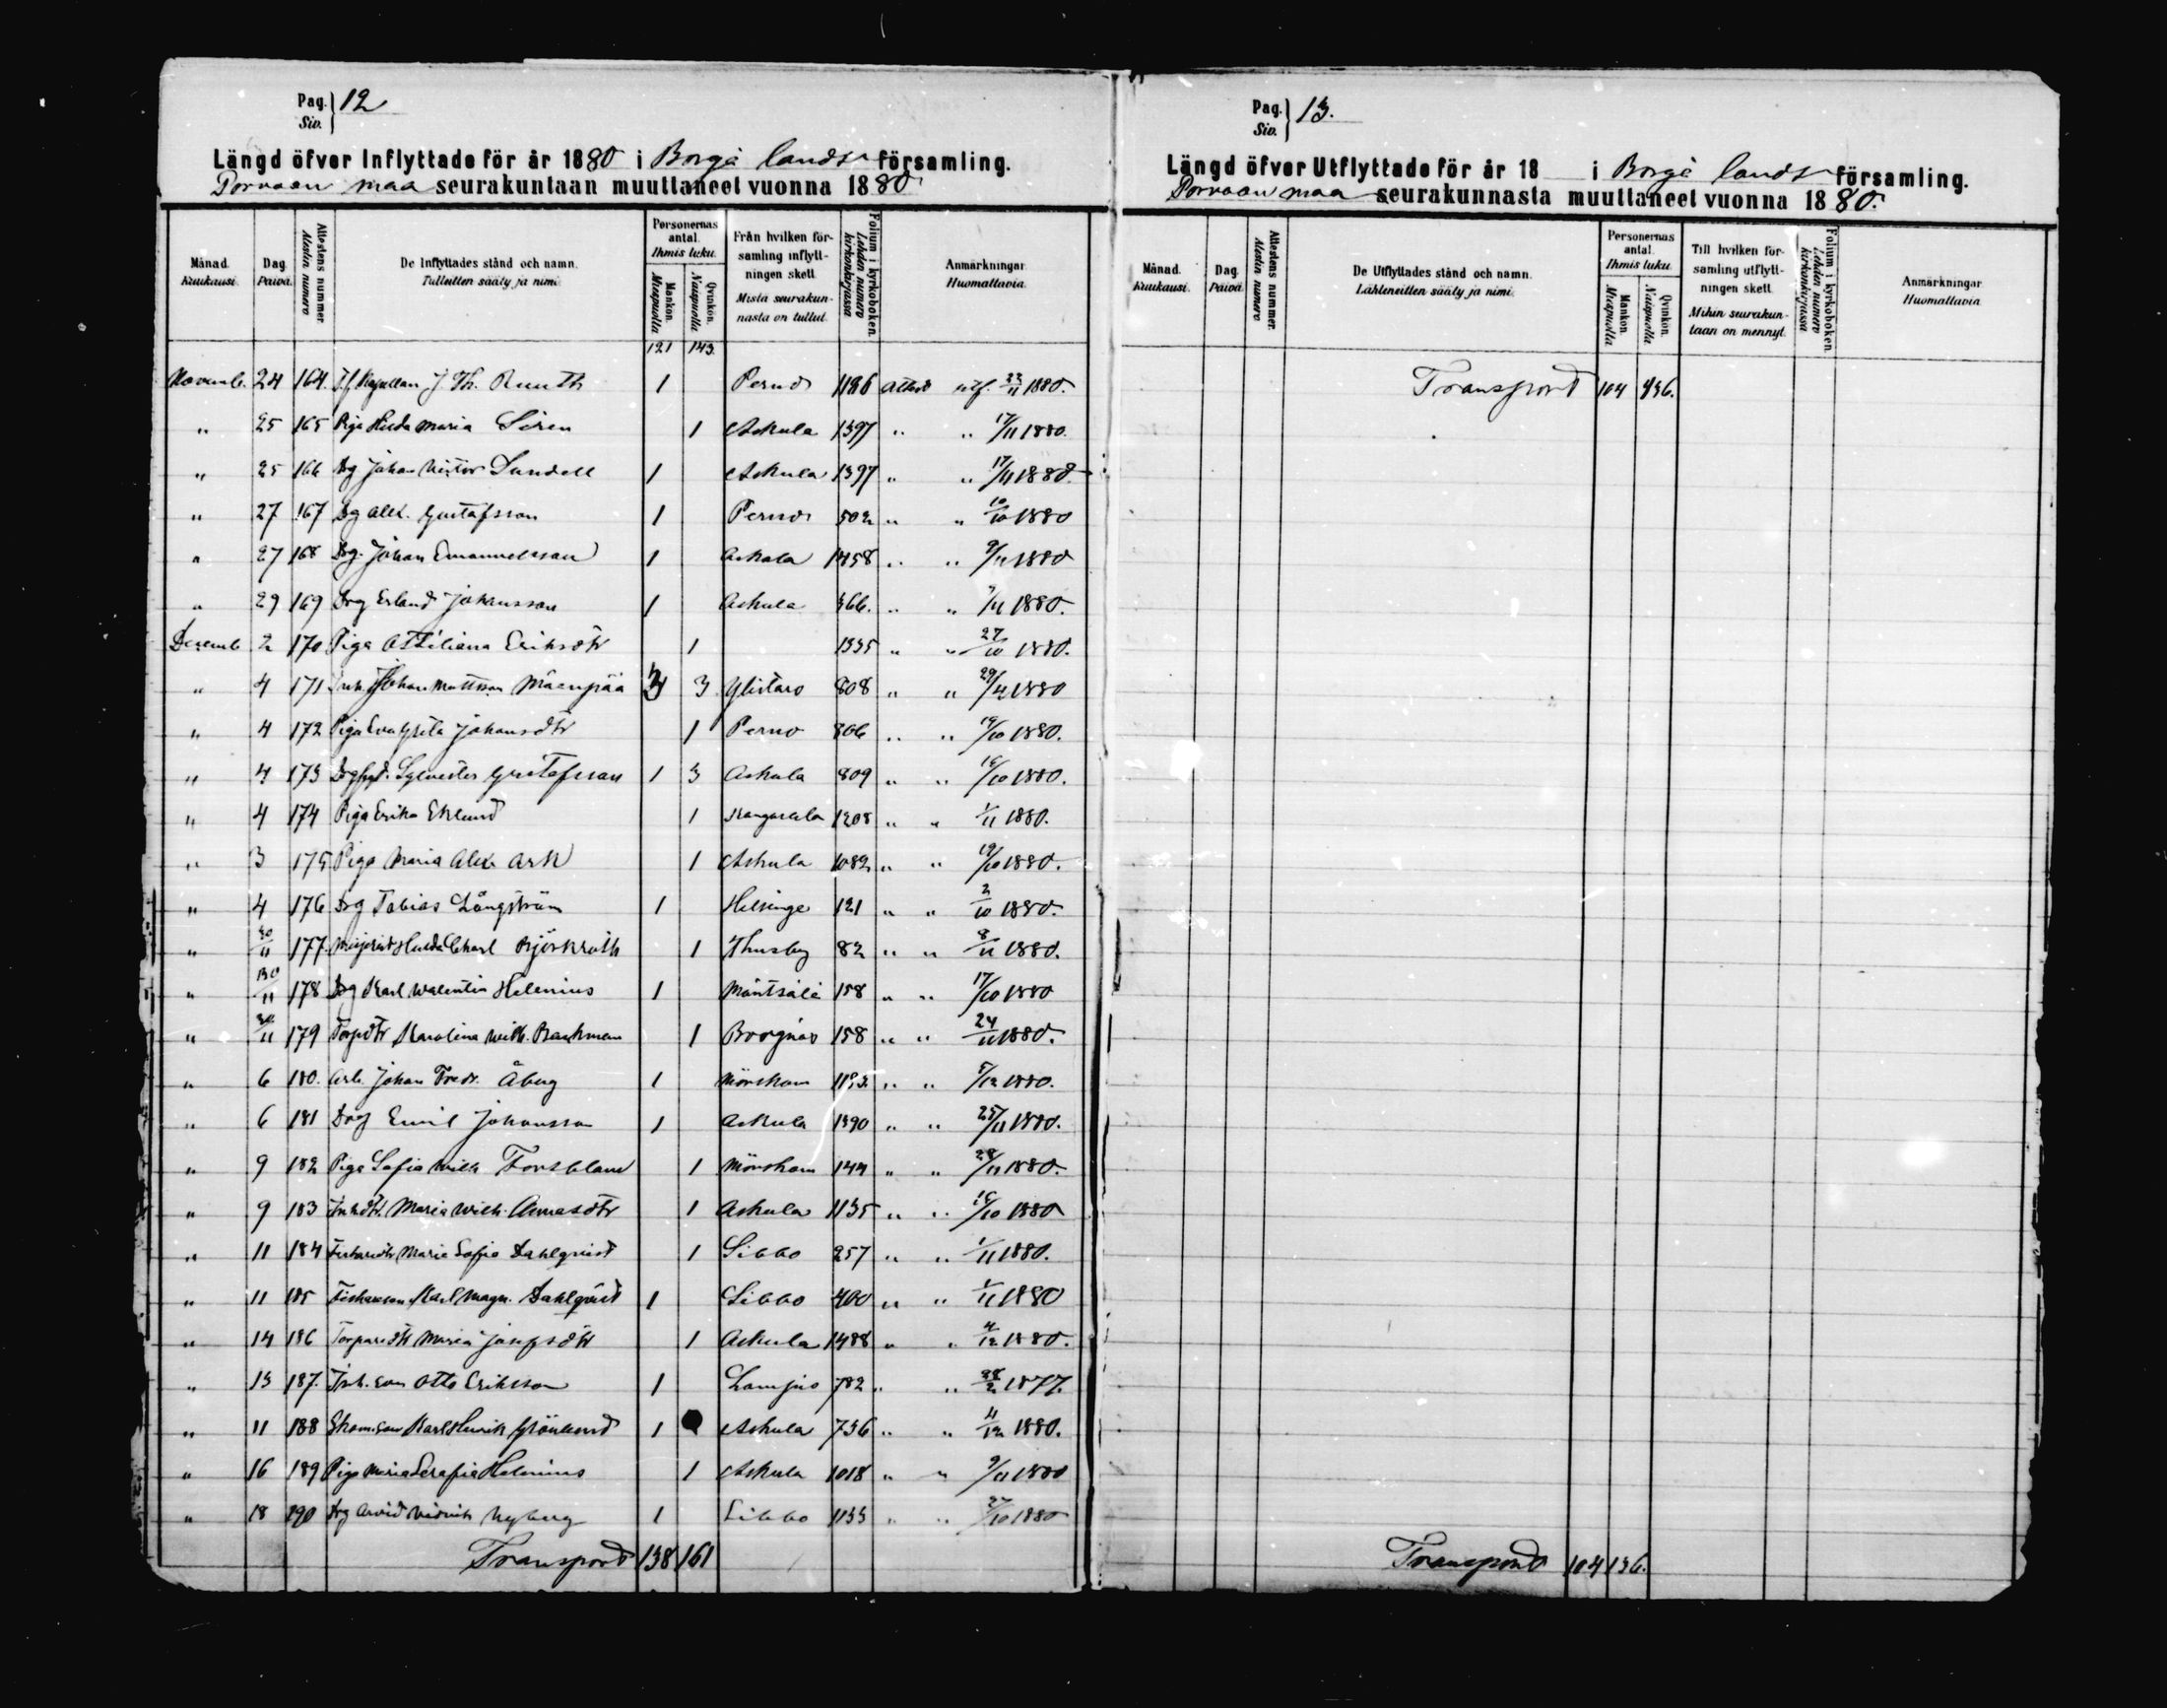 Pag. Siv. } 12
Längd öfver Inflyttade för år 1880 i Borgå lands församling.
Porvoon maa seurakuntaan muuttaneet vuonna 1880.
Månad. Kuukausi. | Dag. Päivä. | Attestens nummer. Atestin numero | De Inflyttades stånd och namn. Tulleitten sääty ja nimi. | Personernas antal. Ihmis luku. Mankön. Miespuolia | Qvinkön. Naispuolia | Från hvilken församling inflyttningen skett. Mistä seurakunnasta on tullut. | Folium i kyrkoboken. Lehden numero kirkonkirjassa | Anmärkningar. Huomattavia.
121 143.
Novemb. 24 164. J. Th. Runth 1 Pernå 1186 Attest utf. 22/11 1880.
" 25 165 Piga Hilda Maria Siren 1 Askula 1397 " " 17/11 1880.
" 25 166 Drg Johan Victor Lundell 1 Askula 1397 " " 17/11 1880.
" 27 167 Drg Alex. Gustafsson 1 Perno 502 " " 10/10 1880
" 27 168 Drg. Johan Emanuelsson 1 Askola 1458 " " 9/11 1880
" 29 169 Drg Erland Johansson 1 Askula 366. " " 9/11 1880.
Decemb 2 170 Piga Ottiliana Eriksdtr 1 1335 " " 27/10 1880.
" 4 171 Inh. Johan Mattsson Mäenpää 3 3 Ylistaro 808 " " 29/4 1880
" 4 172 Piga Eva Greta Johansdtr 1 Perno 806 " " 19/10 1880.
" 4 173 Sylvester Gustafsson 1 3 Askula 809 " " 16/10 1880.
" 4 174 Piga Erika Eklund 1 Kangasala 1208 " " 1/11 1880.
" 3 175 Piga Maria Alex Ark 1 Askula 1082 " " 19/10 1880.
" 4 176 Drg Tobias Långström 1 Helsinge 121 " " 2/10 1880.
" 30/11 177. Hulda Charl Björkroth 1 Thusby 82 " " 8/11 1880.
" 30/11 178 Drg Karl Walentin Helenius 1 Mäntsälä 158 " " 17/10 1880
" 30/11 179 Torpdtr Karolina Wilh. Backman 1 Borgnäs 158 " " 24/11 1880.
" 6 180. Arb. Johan Fredr. Åberg 1 Mörskom 1193. " " 5/12 1880.
" 6 181 Drg Emil Johansson 1 Askula 1390 " " 25/11 1880.
" 9 182 Piga Sofia Wilh Forsblom 1 Mörskom 144 " " 28/11 1880.
" 9 183 Inhdtr. Maria Wilh. 1 Askula 1135 " " 16/10 1880
" 11 184 Maria Sofia Dahlqvist 1 Sibbo 257 " " 1/11 1880.
" 11 185 Karl Magn. Dahlqvist 1 Sibbo 400 " " 1/11 1880
" 14 186 Torparedtr Maria Josefsdtr 1 Askula 1488 " " 4/12 1880.
" 13 187. Inh. son Otto Eriksson 1 782 " " 28/2 1877.
" 11 188 Karl Henrik Grönlund 1 Askula 736 " " 4/12 1880.
" 16 189 Piga Maria Serafia Helenius 1 Askula 1018 " " 9/11 1880
" 18 190 Drg Arvid Nyberg 1 Sibbo 1133 " " 27/10 1880
Transport 138 161
Pag. Siv. } 13.
Längd öfver Utflyttade för år 18 i Borgå lands församling.
Porvoon maa seurakunnasta muuttaneet vuonna 1880.
Månad. Kuukausi. | Dag. Päivä. | Attestens nummer. Atestin numero | De Utflyttades stånd och namn. Lähteneitten sääty ja nimi. | Personernas antal. Ihmis luku. Mankön. Miespuolia | Qvinkön. Naispuolia | Till hvilken församling utflyttningen skett. Mihin seurakuntaan on mennyt. | Folium i kyrkoboken. Lehden numero kirkonkirjassa | Anmärkningar. Huomattavia.
Transport 104 136.
Transport 104 136.